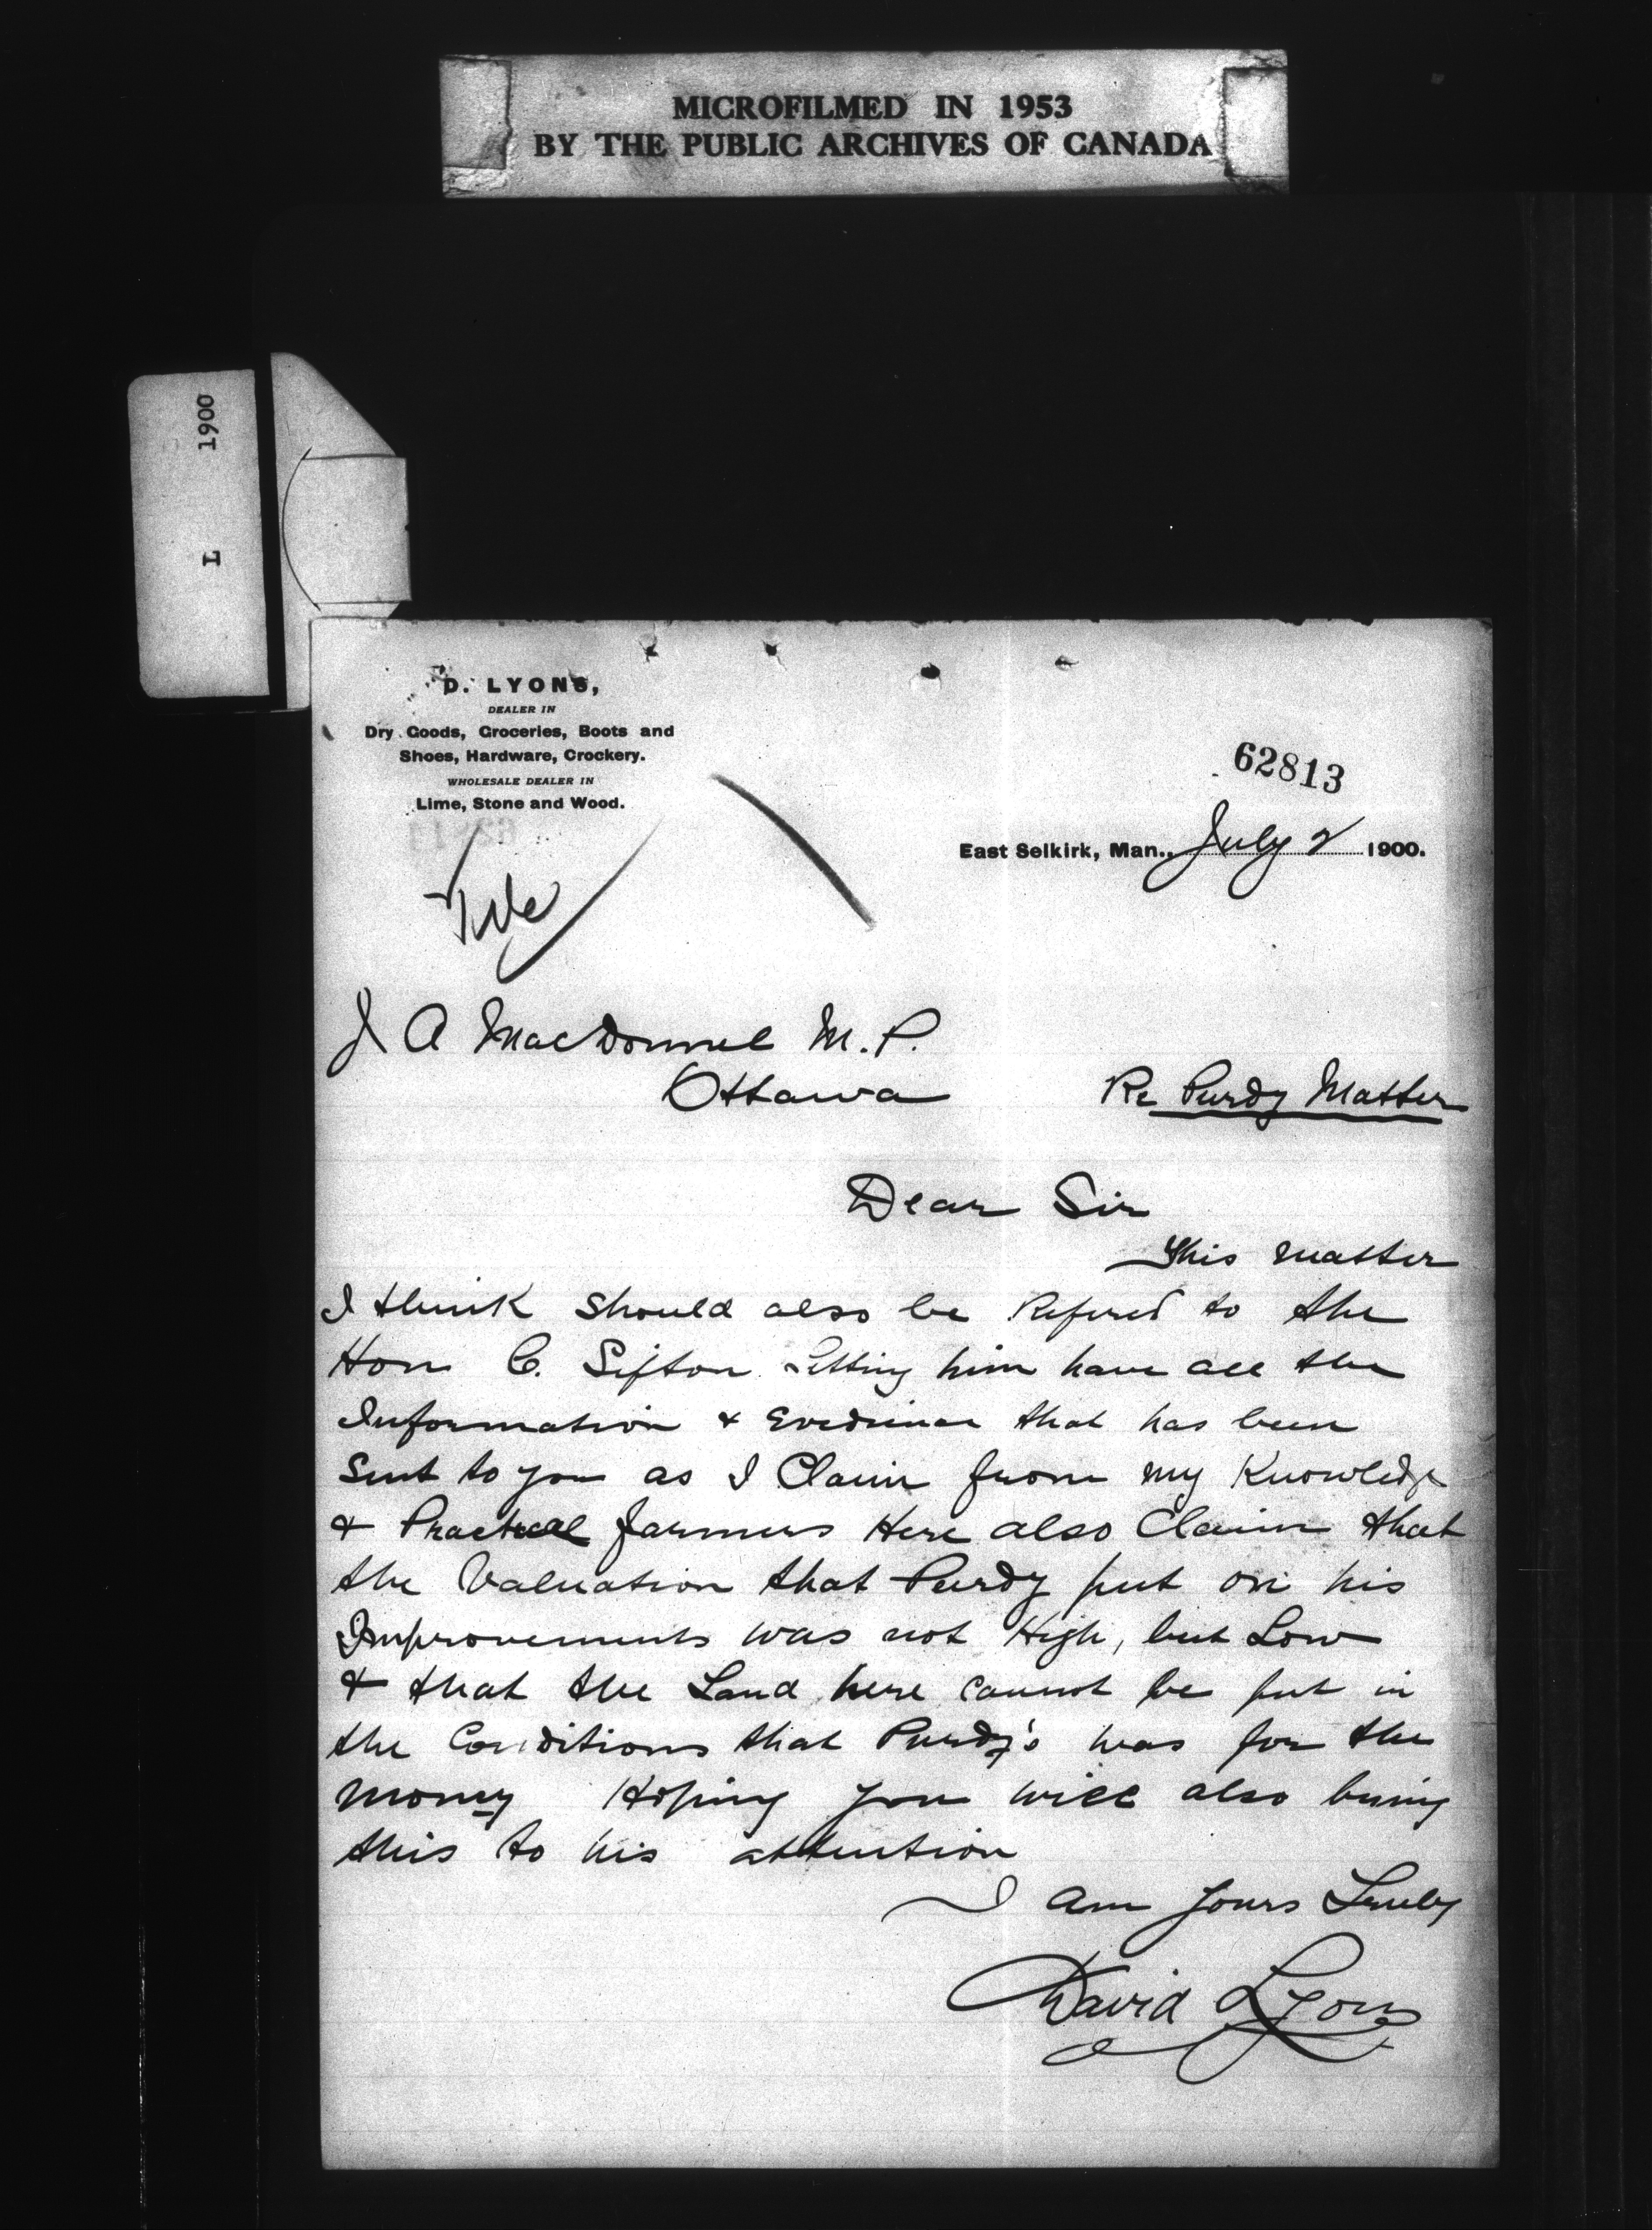 MICROFILMED IN 1953
BY THE PUBLIC ARCHIVES OF CANADA
1900
L
D. LYONS,
DEALER IN
Dry Goods, Groceries, Boots and
Shoes, Hardware, Crockery.
WHOLESALE DEALER IN
Lime, Stone and Wood.
62813
East Selkirk, Man., July 2 1900.
File
J A MacDonnel M.P.
Ottawa
Re Purdy Matter
Dear Sir
This matter
I think should also be Refered to the
Hon C. Sifton letting him have all the
Information & Evedince that has been
Sent to you as I Claim from my Knowledge
& Practical farmers Here also Claim that
the Valuation that Purdy put on his
Improvements was not High, but Low
& that the Land here cannot be put in
the Conditions that Purdy's was for the
Money Hoping you will also bring
this to his attention
I am yours Truly
David Lyons